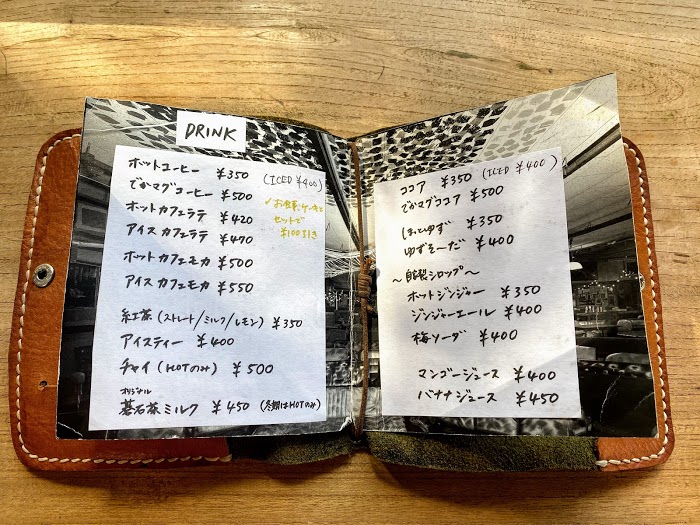 DRINK
ホットコーヒー ¥350 (ICED ¥400)
でかマグコーヒー ¥500
ホットカフェラテ ¥420
アイスカフェラテ ¥470
✓お食事、ケーキと
セットで
¥100引き
ホットカフェモカ ¥500
アイスカフェモカ ¥550
紅茶(ストレート/ミルク/レモン) ¥350
アイスティー ¥400
チャイ(HOTのみ) ¥500
オリジナル
碁石茶ミルク ¥450 (冬期はHOTのみ)
ココア ¥350 (ICED ¥400)
でかマグココア ¥500
ほっとゆず ¥350
ゆずそーだ ¥400
〜自製シロップ〜
ホットジンジャー ¥350
ジンジャーエール ¥400
梅ソーダ ¥400
マンゴージュース ¥400
バナナジュース ¥450